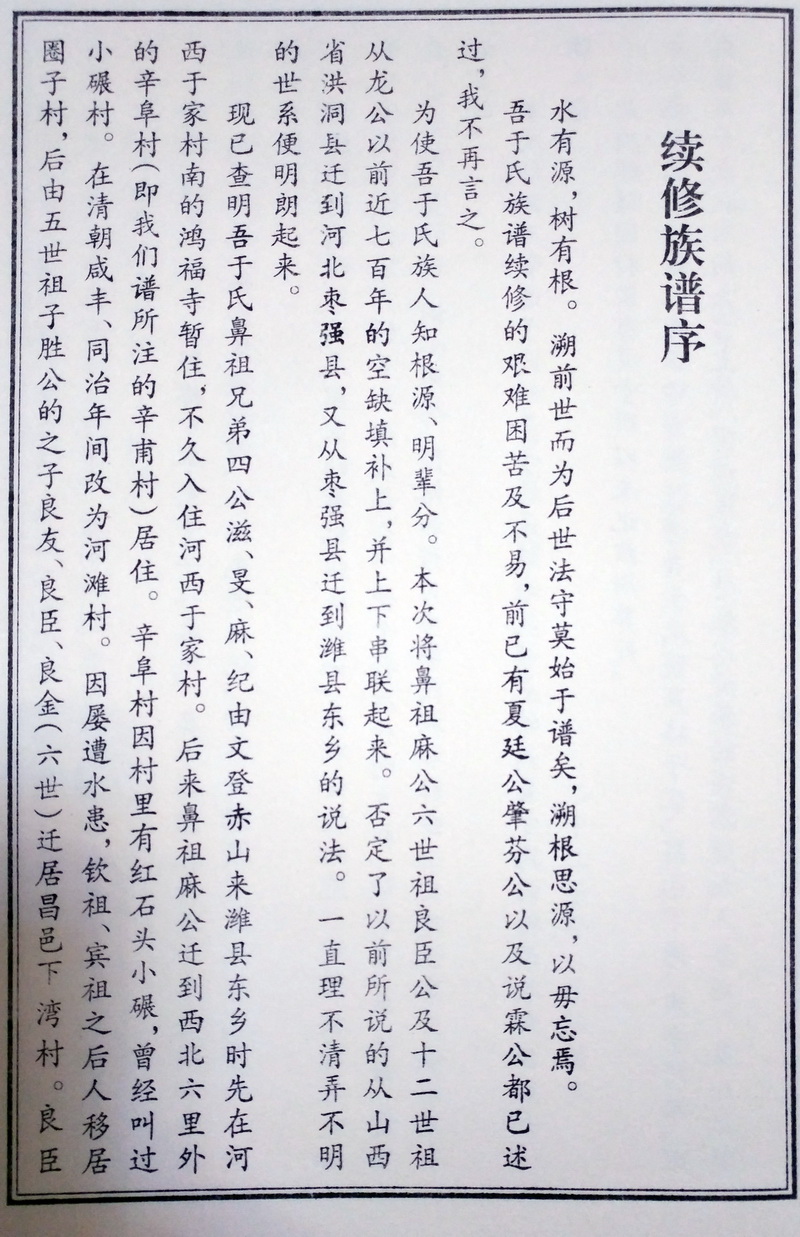 续修族谱序
水有源，树有根。溯前世而为后世法守莫始于谱矣，溯根思源，以毋忘焉。
吾于氏族谱续修的艰难困苦及不易，前已有夏廷公肇芬公以及说霖公都已述
过，我不再言之。
为使吾于氏族人知根源、明辈分。本次将鼻祖麻公六世祖良臣公及十二世祖
从龙公以前近七百年的空缺填补上，并上下串联起来。否定了以前所说的从山西
省洪洞县迁到河北枣强县，又从枣强县迁到潍县东乡的说法。一直理不清弄不明
的世系便明朗起来。
现已查明吾于氏鼻祖兄弟四公滋、旻、麻、纪由文登赤山来潍县东乡时先在河
西于家村南的鸿福寺暂住，不久入住河西于家村。后来鼻祖麻公迁到西北六里外
的辛阜村(即我们谱所注的辛甫村)居住。辛阜村因村里有红石头小碾，曾经叫过
小碾村。在清朝咸丰、同治年间改为河滩村。因屡遭水患，钦祖、宾祖之后人移居
圈子村，后由五世祖子胜公的之子良友、良臣、良金(六世)迁居昌邑下湾村。良臣